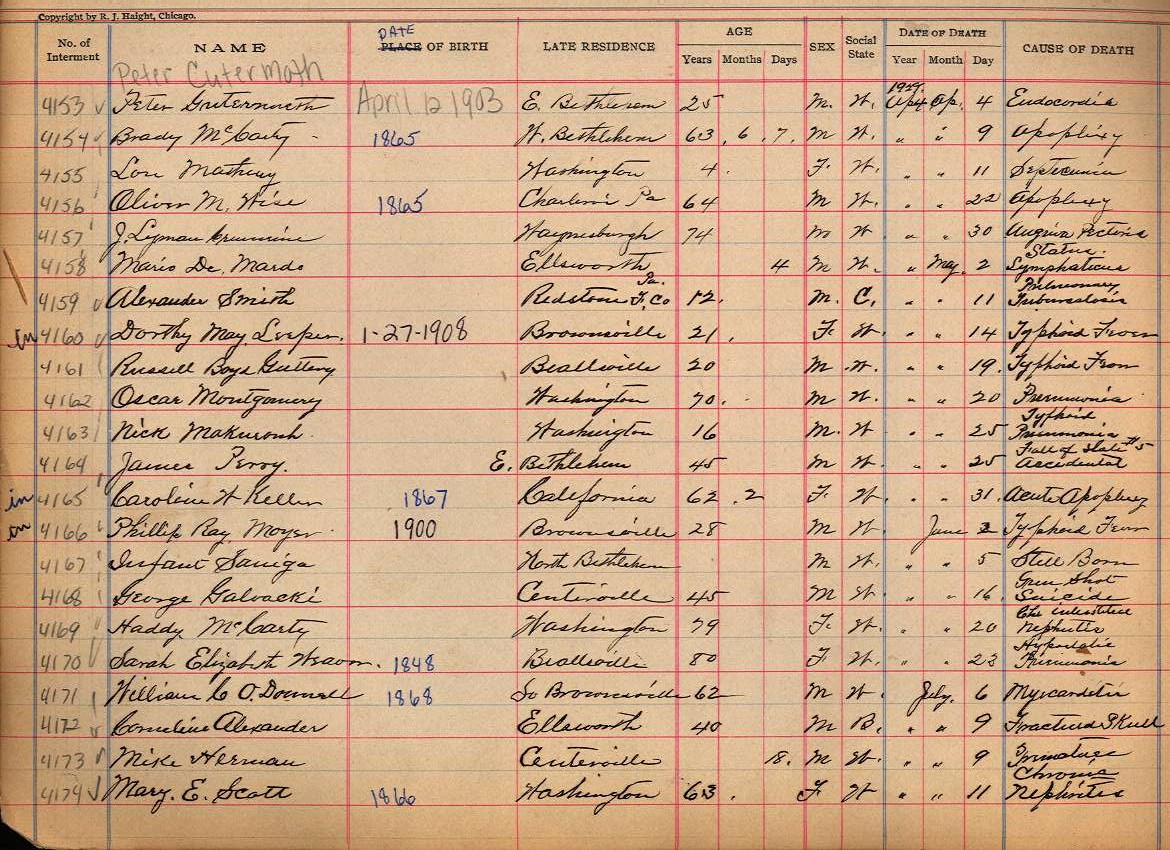 Copyright by R. J. Haight, Chicago.
No. of Interment NAME DATE PLACE OF BIRTH LATE RESIDENCE AGE Years Months Days SEX Social State DATE OF DEATH Year Month Day CAUSE OF DEATH
Peter Cutermath
4153 Peter Guternuth April 12 1903 E. Bethlehem 25 M. W. 1929 Ap. 4 Endocordia
4154 Brady McCarty 1865 W. Bethlehem 63 6 7 M W. " " 9 Apoplexy
4155 Washington 4 F. W. " " 11
4156 Oliver M. Wise 1865 Pa 64 M W. " " 22 Apoplexy
4157 J. Lyman Waynesburgh 74 W " " 30 Angina Pectoris
4158 Mario De. Mardo Ellsworth 4 M W. " May. 2 Status Lymphaticus
4159 Alexander Smith Redstone F. Co Pa. 12. M. C. " " 11 Pulmonary Tuberculosis
in 4160 Dorthy May Leeper. 1-27-1908 Brownsville 21 F. W. " " 14 Typhoid Fever
4161 Russell Boyd Guttery Beallsville 20 M W. " " 19. Typhoid Fever
4162 Oscar Montgomery Washington 70 M W. " " 20 Pneumonia
4163 Nick Washington 16 M. W " " 25 Typhoid Pneumonia
4164 James Perry. E. Bethlehem 45 M W " " 25 Fall of Slate #5 Accidental
in 4165 Caroline W Keller 1867 California 62 2 F. W. " " 31. Acute Apoplexy
in 4166 Phillip Ray Moyer 1900 Brownsville 28 M W. June 2 Typhoid Fever
4167 Infant Saniga North Bethlehem M W. " " 5 Still Born
4168 George Galvacki Centerville 45 M W. " " 16. Gun Shot Suicide
4169 Haddy McCarty Washington 79 F. W. " " 20 Nephritis
4170 Sarah Elizabeth Weaver. 1848 Beallsville 80 F W. " " 23 Hypostatic Pneumonia
4171 William C O. Donnell 1868 So Brownsville 62 M W. July. 6 Myocarditis
4172 Cornelius Alexander Ellsworth 40 M B. " " 9 Fractured Skull
4173 Mike Herman Centerville 18. M W. " " 9 Premature
4174 Mary. E. Scott 1866 Washington 63 F. W " " 11 Chronic Nephrites